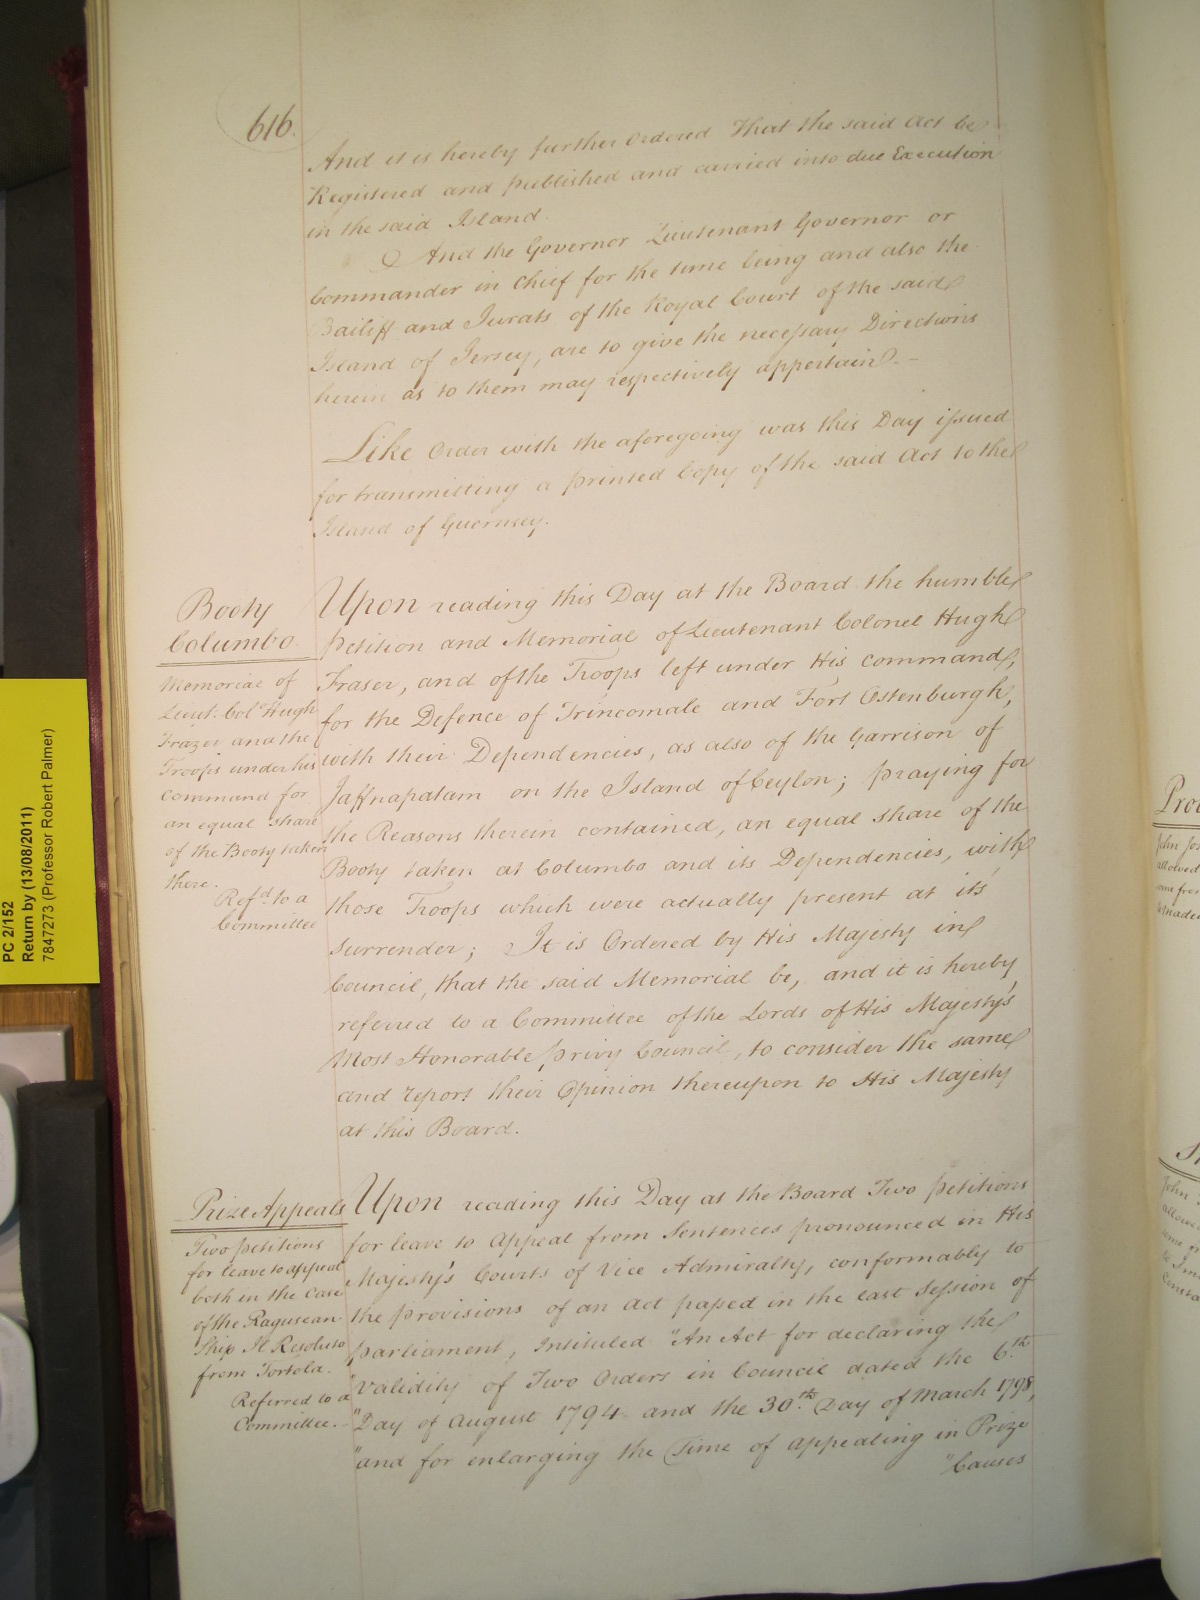 616.
And it is hereby further Ordered That the said Act be
Registered and published and carried into due Execution
in the said Island.
And the Governor Lieutenant Governor or
Commander in Chief for the time being and also the
Bailiff and Jurats of the Royal Court of the said
Island of Jersey, are to give the necessary Directions
herein as to them may respectively appertain.
Like Order with the aforegoing was this Day issued
for transmitting a printed Copy of the said Act to the
Island of Guernsey.
Booty
Columbo.
Memorial of
Lieut. Col.l Hugh
Frazer and the
Troops under his
command for
an equal share
of the Booty taken
there.
Ref.d to a
Committee
Upon reading this Day at the Board the humble
Petition and Memorial of Lieutenant Colonel Hugh
Fraser, and of the Troops left under His command,
for the Defence of Trincomale and Fort Ostenburgh,
with their Dependencies, as also of the Garrison of
Jaffnapatam on the Island of Ceylon; praying for
the Reasons therein contained, an equal share of the
Booty taken at Columbo and its Dependencies, with
those Troops which were actually present at its
surrender; It is Ordered by His Majesty in
Council, that the said Memorial be, and it is hereby
referred to a Committee of the Lords of His Majesty's
Most Honorable Privy Council, to consider the same
and report their Opinion thereupon to His Majesty
at this Board.
Prize Appeals
Two petitions
for leave to appeal
both in the Case
of the Ragusean
Ship Il Resoluto
from Tortola.
Referred to a
Committee.
Upon reading this Day at the Board Two petitions
for leave to Appeal from Sentences pronounced in His
Majesty's Courts of Vice Admiralty, conformably to
the provisions of an Act passed in the last Session of
Parliament, Intituled "An Act for declaring the
"Validity of Two Orders in Council dated the 6.th
"Day of August 1794 and the 30.th Day of March 1798,
"and for enlarging the Time of appealing in Prize
"Causes
PC 2/152
Return by (13/08/2011)
7847273 (Professor Robert Palmer)